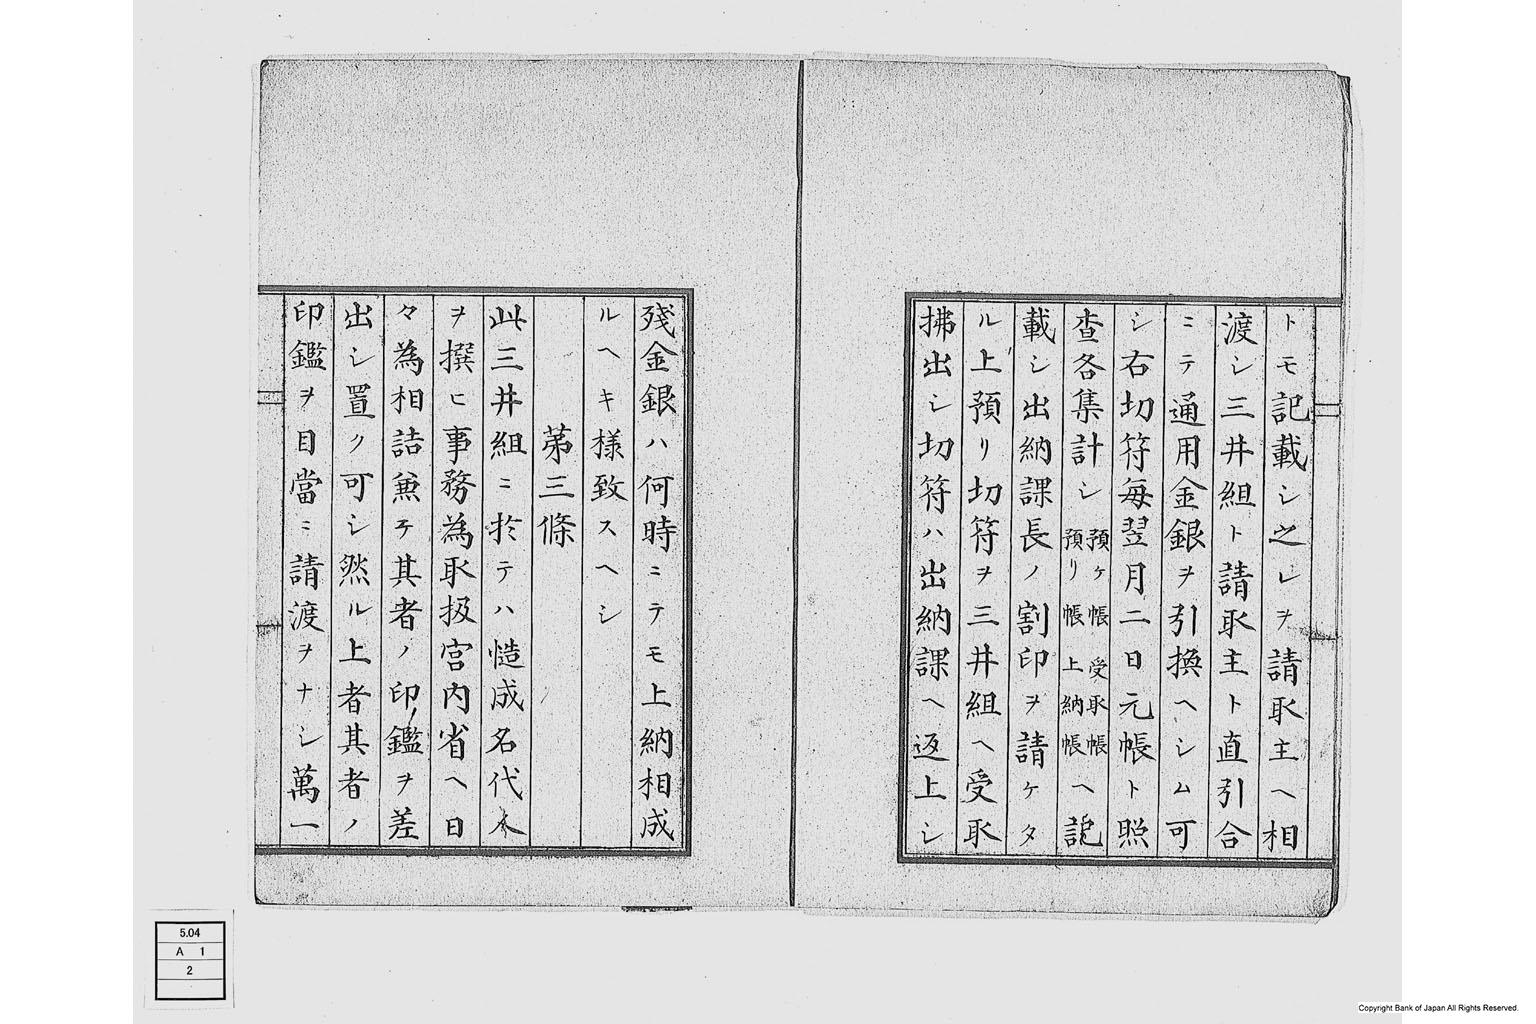 トモ記載シ之レヲ請取主ヘ相
渡シ三井組ト請取主ト直引合
ニテ通用金銀ヲ引換ヘシム可
シ右切符毎翌月二日元帳ト照
査各集計シ預ヶ帳受取帳
預リ帳上納帳ヘ記
載シ出納課長ノ割印ヲ請ケタ
ル上預リ切符ヲ三井組ヘ受取
拂出シ切符ハ出納課ヘ返上シ
殘金銀ハ何時ニテモ上納相成
ルヘキ樣致スヘシ
第三條
此三井組ニ於テハ慥成名代人
ヲ撰ヒ事務為取扱宮内省ヘ日
々為相詰兼テ其者ノ印鑑ヲ差
出シ置ク可シ然ル上者其者ノ
印鑑ヲ目當ニ請渡ヲナシ萬一
5.04
A 1
2
Copyright Bank of Japan All Rights Reserved.